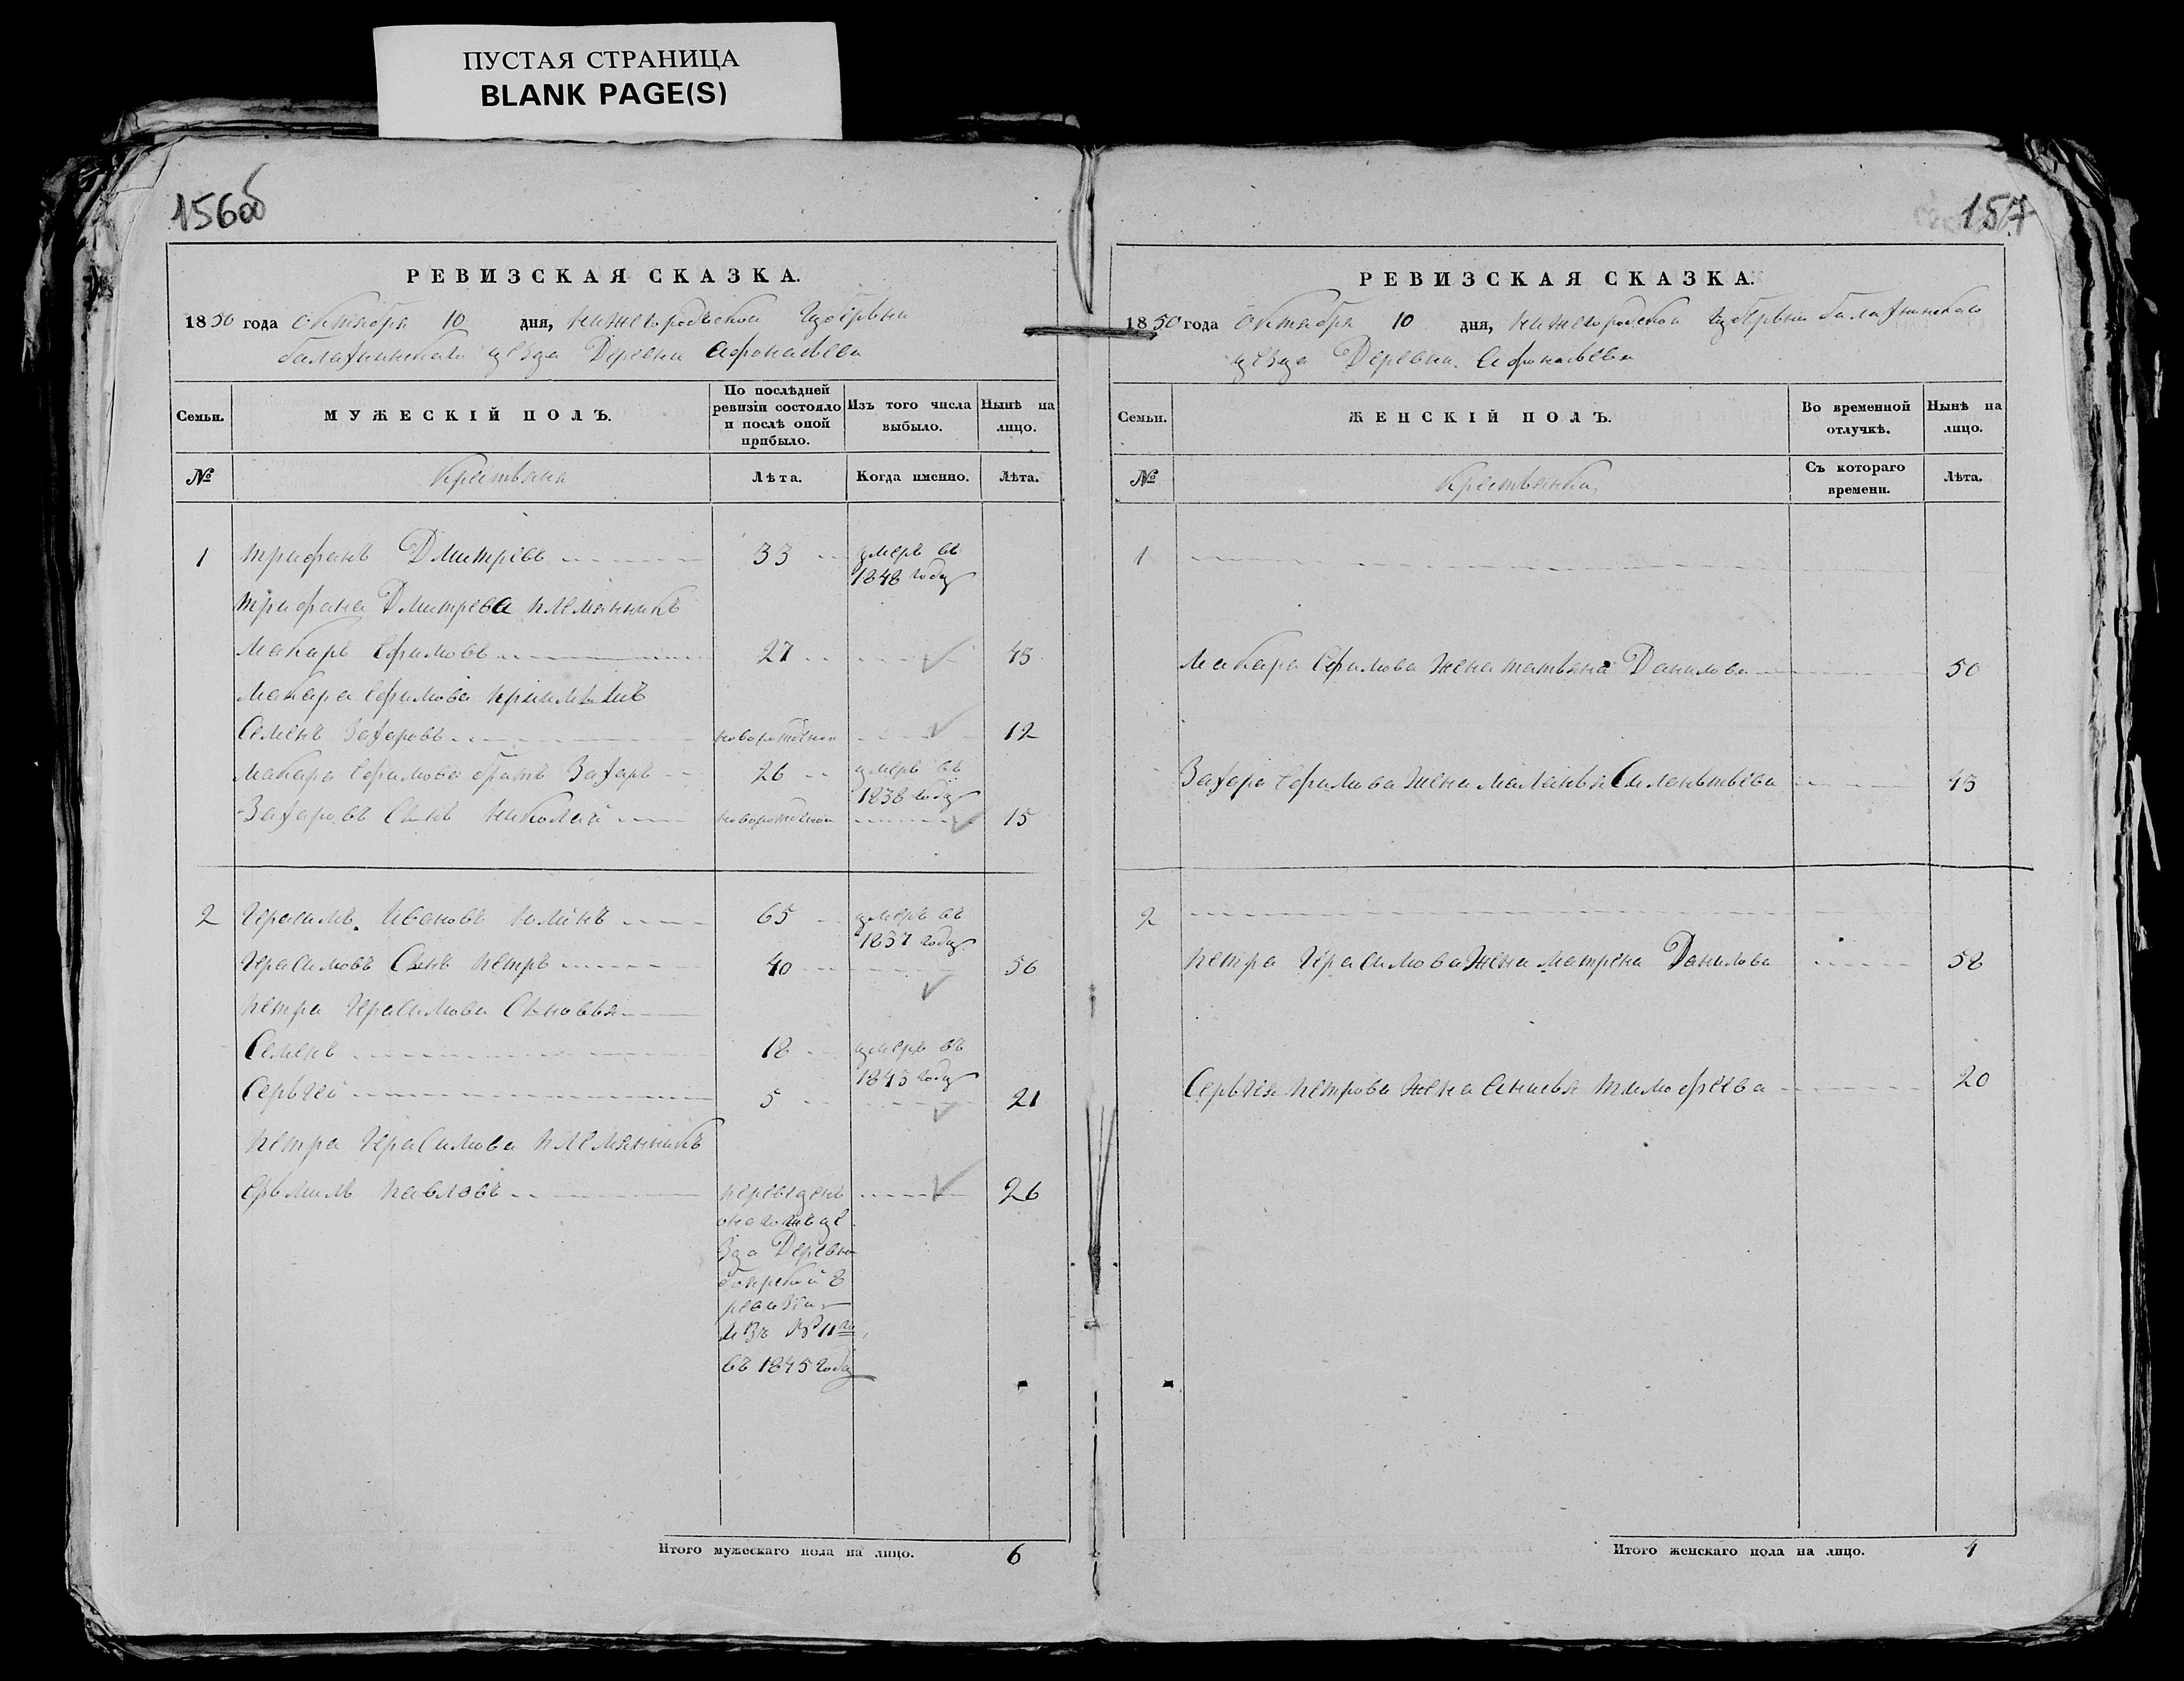 ПУСТАЯ СТРАНИЦА
BLANK PAGE(S)
156об
РЕВИЗСКАЯ СКАЗКА.
1850 года октября 10 дня, нижегородской губерьни
балахнинскаго уезда Деревни Афонасьева
Семьи. МУЖЕСКІЙ ПОЛЪ. По послѣдней ревизіи состояло и послѣ оной прибыло. Изъ того числа выбыло. Нынѣ на лицо.
№ Крестьяна Лѣта. Когда именно. Лѣта.
1 трифанъ Дмитріевъ 33 умеръ въ
1848 году
трифана Дмитрева племянникъ
Макаръ Ефимовъ 27 43
Макара Ефимова
Семенъ Захаровъ новорожденой 12
Макара Ефимова братъ Захаръ 26 умеръ въ
1838 году
Захаровъ Сынъ Николай новорожденой 15
2 Герасимъ Ивановъ 65 умеръ въ
1837 году
Герасимовъ Сынъ петръ 40 56
петра Герасимова Сыновья
Семенъ 18 умеръ въ
1843 году
Серьгей 5 21
петра Герасимова племянникъ
Ерьмилъ павловъ переведенъ 26
оногожъ уе
зда Деревни
боярской 8
ревизіи
изъ № 11го
въ 1845 году
Итого мужескаго пола на лицо. 6
157
РЕВИЗСКАЯ СКАЗКА.
1850 года Октября 10 дня, нижегородской губерьни балахнинскаго
уезда Деревни Афонасьева
Семьи. ЖЕНСКІЙ ПОЛЪ. Во временной отлучкѣ. Нынѣ на лицо.
№ Крестьянки Съ котораго времени. Лѣта.
1
Макара Ефимова жена татьяна Данилова 50
Захара Ефимова Жена маланья Силеньтьева 43
2
петра Герасимова Жена матрена Данилова 58
Серьгея петрова жена тимофеева 20
Итого женскаго пола на лицо. 4